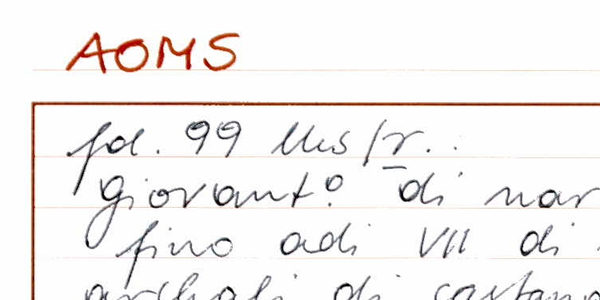 AOMS
fol. 99
giovant° di nar
fino adi VII di
di castano